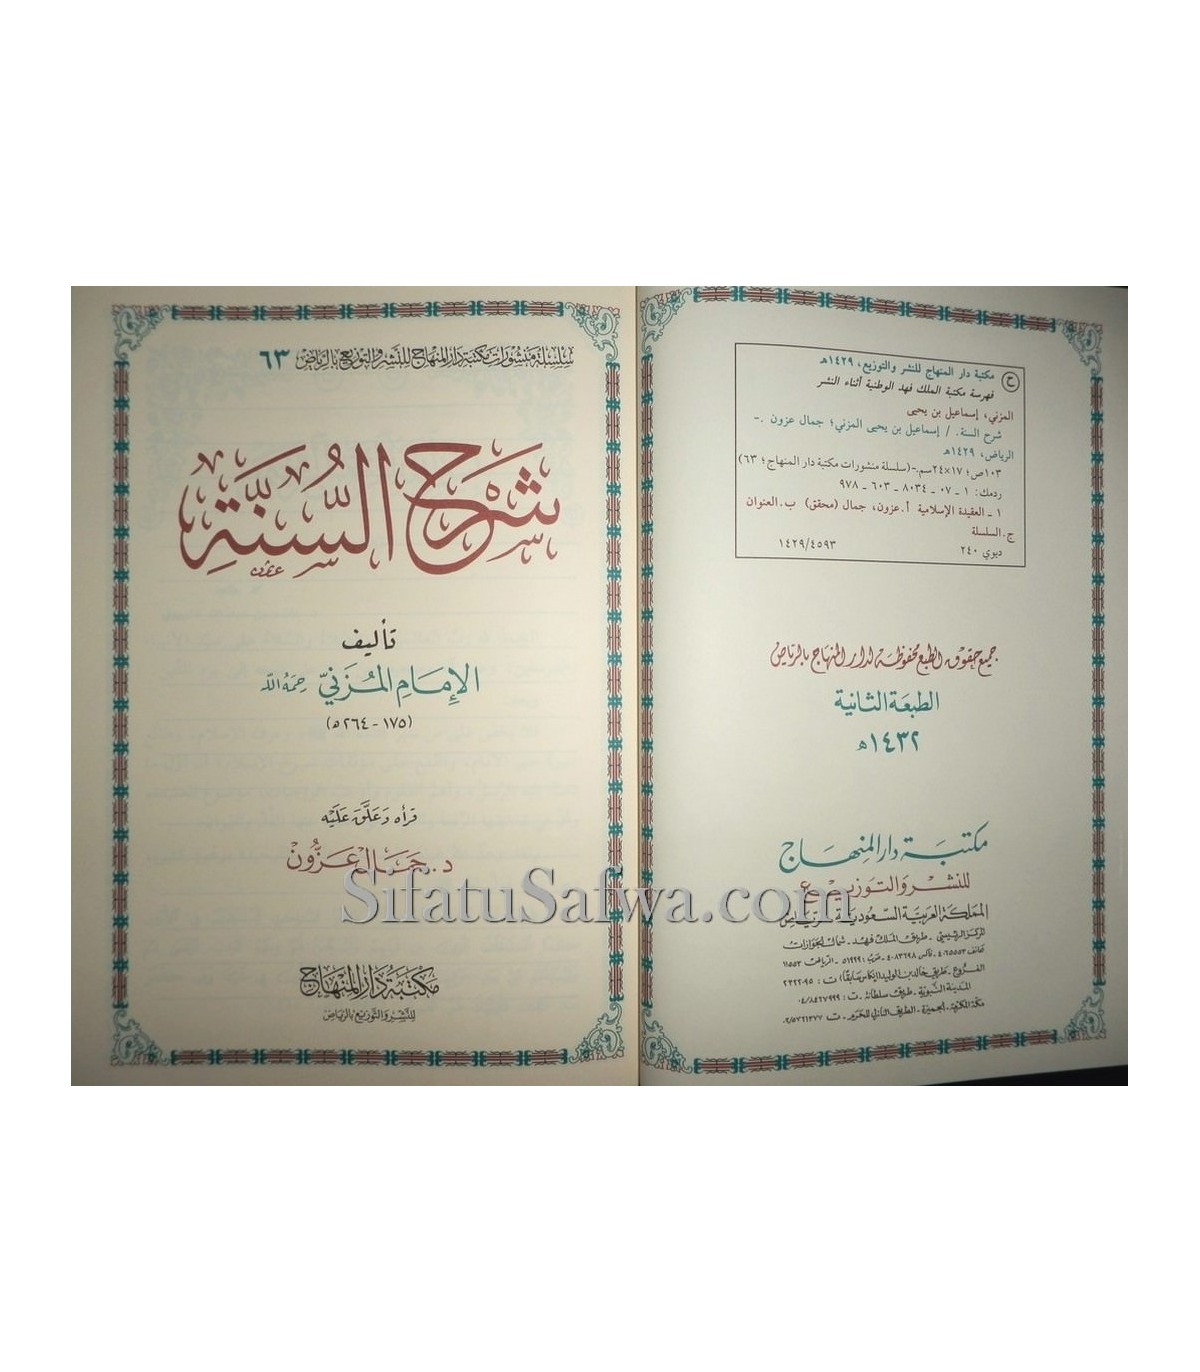 مكتبة دار المنهاج للنشر والتوزيع، ١٤٢٩هـ
فهرسة مكتبة الملك فهد الوطنية أثناء النشر
المزني، إسماعيل بن يحيى
شرح السنة. / إسماعيل بن يحيى المزني؛ جمال عزون .-
الرياض، ١٤٢٩هـ
١٠٣ص؛ ١٧×٢٤سم.-(سلسلة منشورات مكتبة دار المنهاج؛ ٦٣)
ردمك: ١ ـ ٠٧ ـ ٨٠٣٤ ـ ٦٠٣ ـ ٩٧٨
١ ـ العقيدة الإسلامية أ.عزون، جمال (محقق) ب.العنوان
ج.السلسلة
ديوي ٢٤٠ ١٤٢٩/٤٥٩٣
جميع حقوق الطبع محفوظة لدار المنهاج بالرياض
الطبعة الثانية
١٤٣٢هـ
مكتبة دار المنهاج
للنشر والتوزيع
المملكة العربية السعودية ـ الرياض
المركز الرئيسي ـ طريق الملك فهد ـ شمال الجوازات
هاتف ٤٠٦٥٥٥٣ ـ فاكس ٤٠٨٣٦٩٨ ـ ص.ب: ٥١٩٢٩ ـ الرياض ١١٥٥٣
الفروع ـ طريق خالد بن الوليد (إنكاس سابقا) ت : ٢٣٢٢٠٩٥
المدينة النبوية ـ طريق سلطانة ـ ت : ٠٤/٨٤٦٧٩٩٩
مكة المكرمة ـ الجميزة ـ الطريق النازل للحرم ـ ت ٠٢/٥٧٦١٣٧٧
سلسلة منشورات مكتبة دار المنهاج للنشر والتوزيع بالرياض ٦٣
شرح السنة
تأليف
الإمام المزني رحمه الله
(١٧٥ - ٢٦٤هـ)
قرأه وعلق عليه
د. جمال عزون
مكتبة دار المنهاج
للنشر والتوزيع بالرياض
SifatuSafwa.com